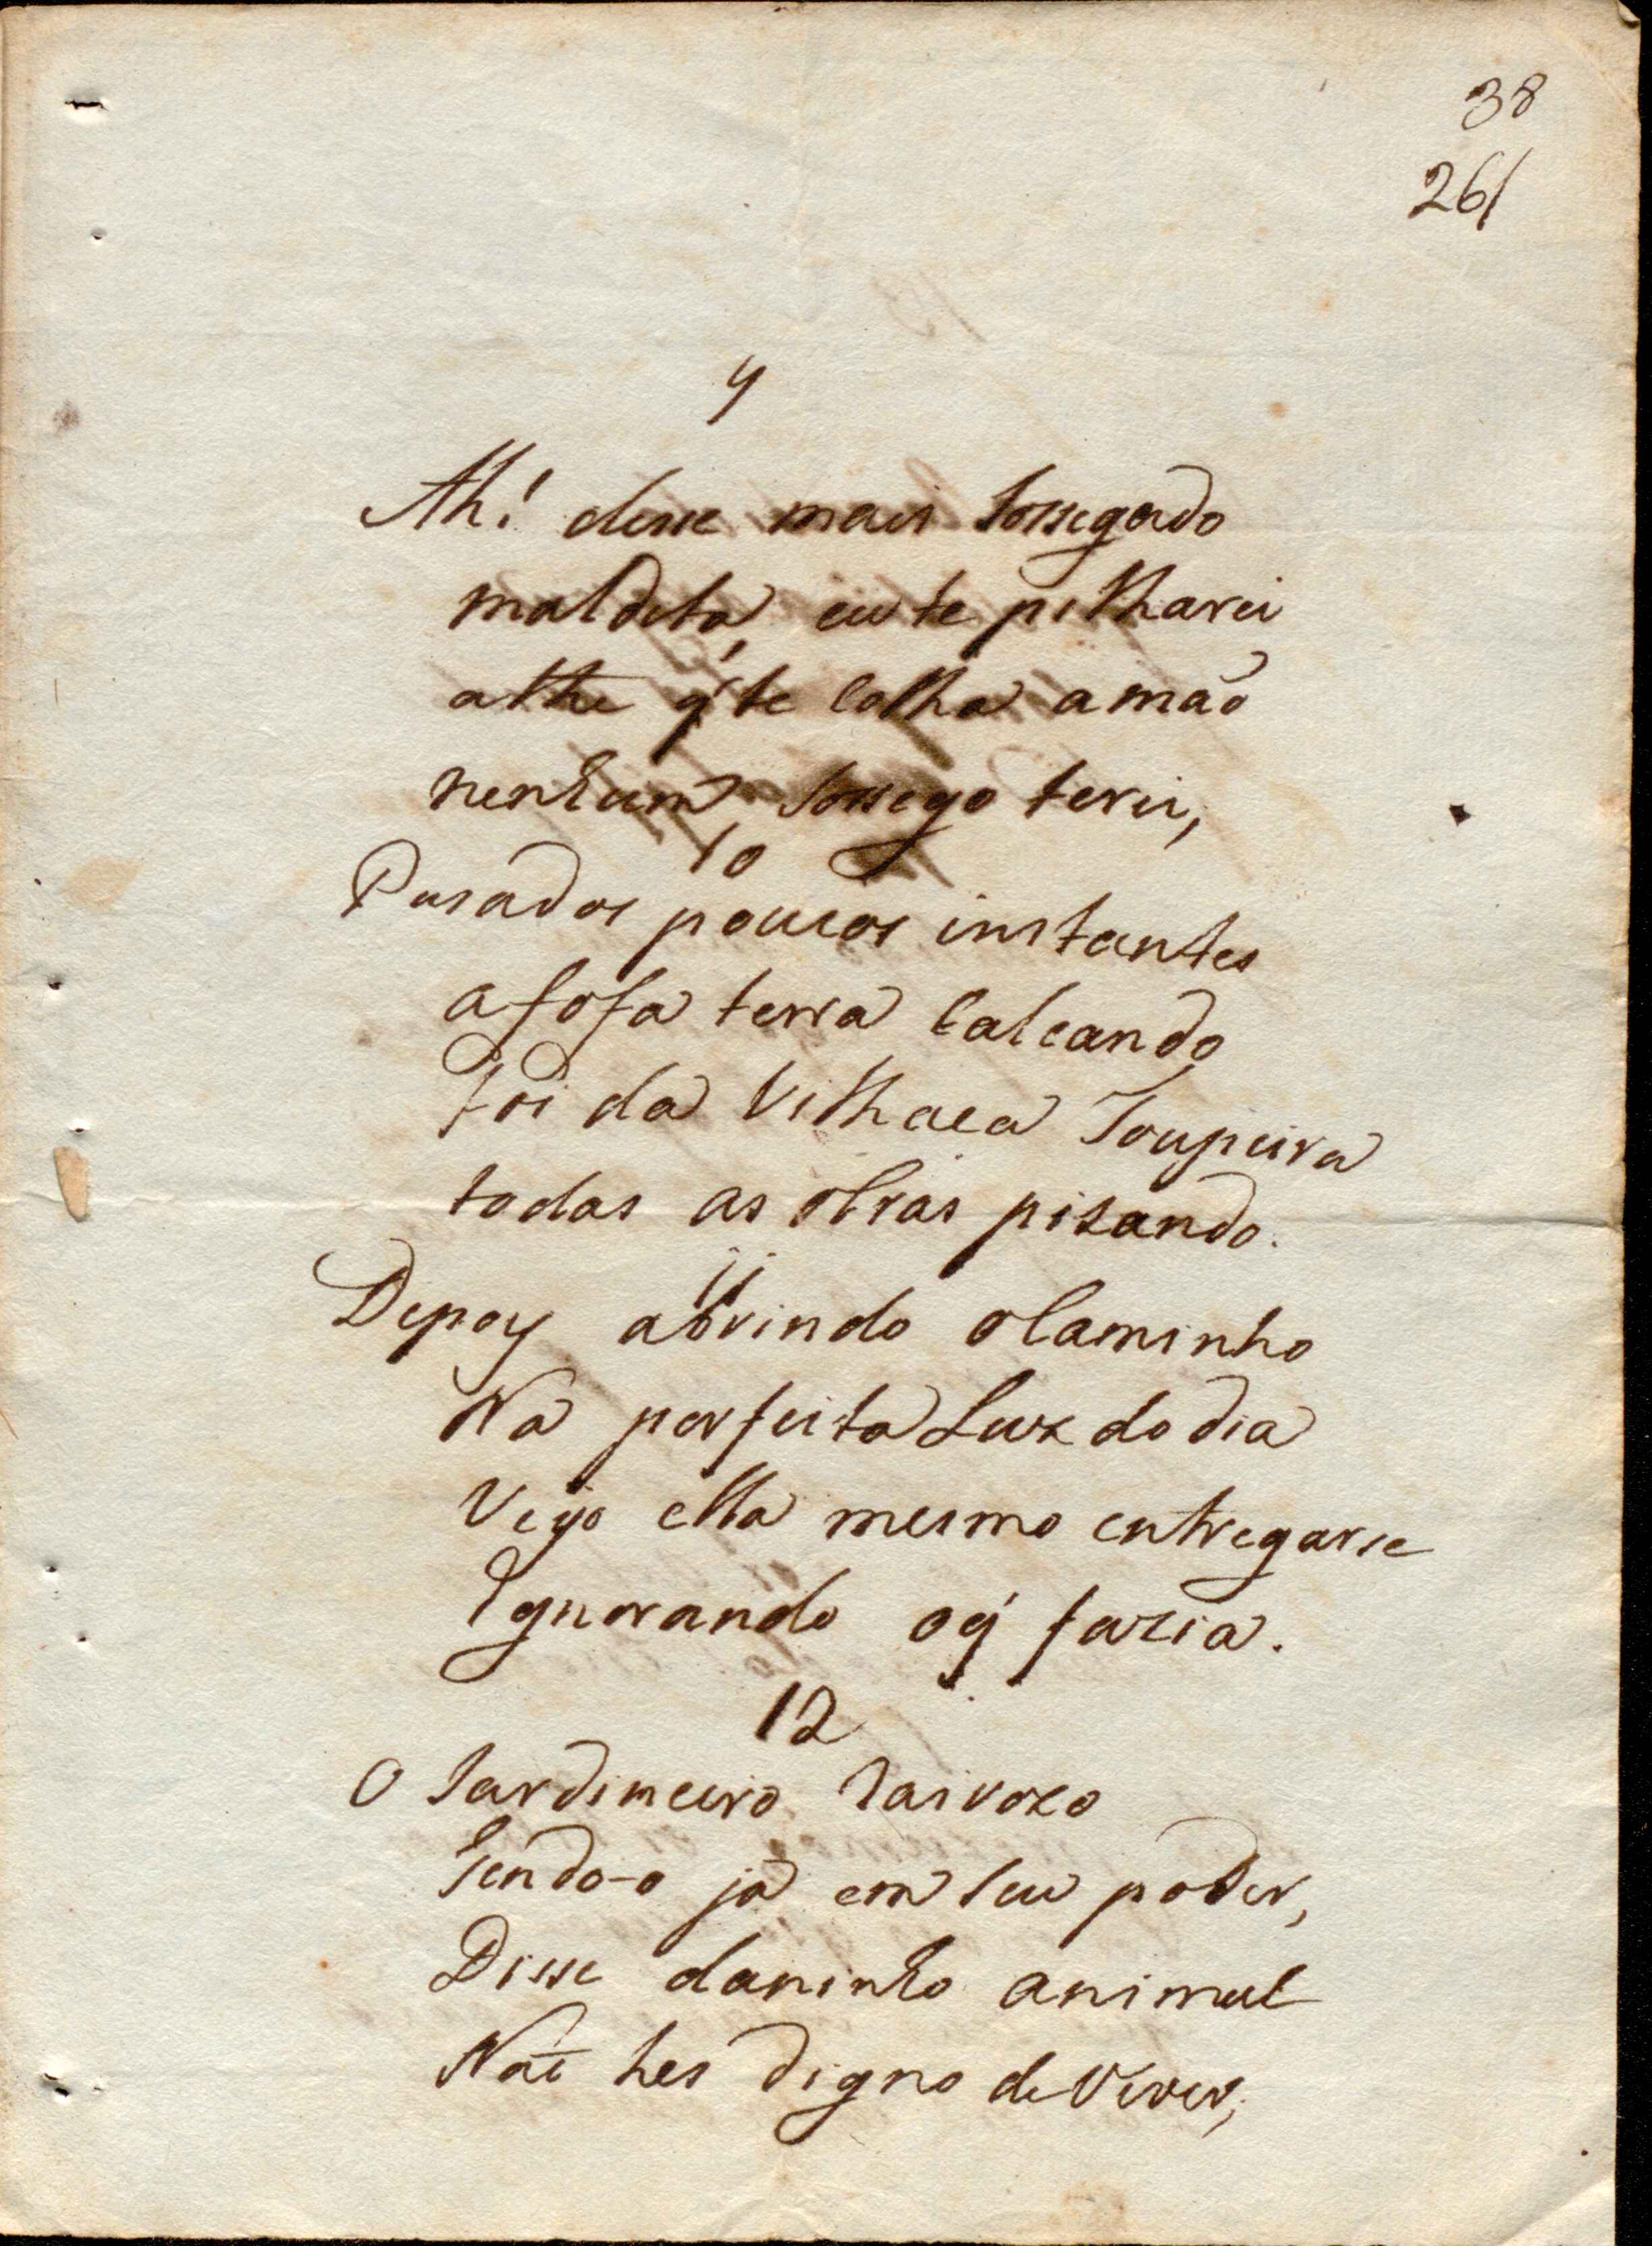 38
261
9
Ah! disse mais sossegado
maldita, eu te pilharei
athe q' te colha a mão
nenhum sossego terei,
10
Pasados poucos instantes
a fofa terra calcando
foi da Vilhaca Toupeira
todas as obras pizando.
11
Depoy abrindo o Caminho
Na perfeita Luz do dia
Vejo ella mesmo entregarse
Ignorando o q' fazia.
12
O Jardineiro Raivozo
Tendo-o já em seu poder,
Disse daninho animal
Não hes digno de Viver,